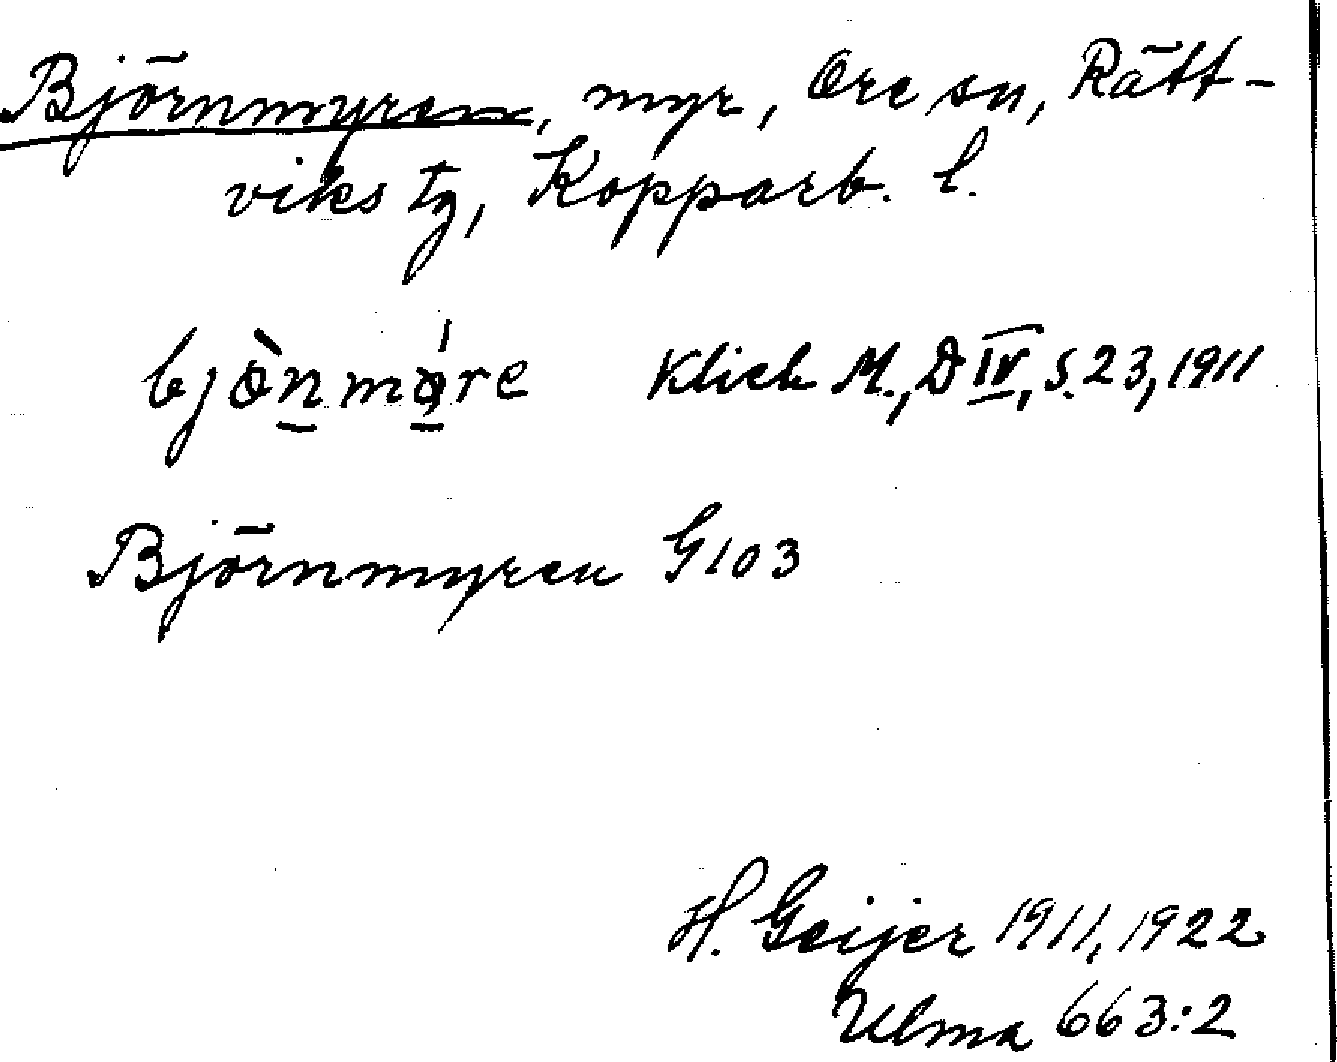 Björnmyren, myr, Ore sn, Rätt-
viks tg, Kopparb. l.
bjònmǫ́re Klick M., D IV, s. 23, 1911
Björnmyren G103
H. Geijer 1911, 1922
Ulma 663:2